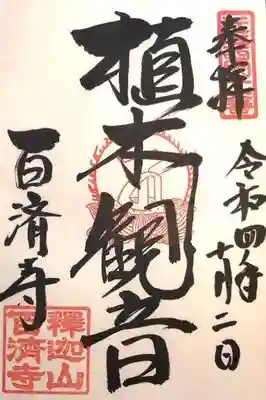 奉拝
令和四年十月二日
植木観音
百済寺
釋迦山
百濟寺